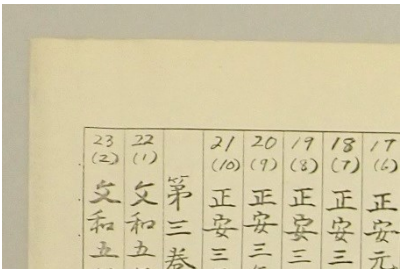 17 (6) 正安元
18 (7) 正安三
19 (8) 正安三
20 (9) 正安三
21 (10) 正安三
第三巻
22 (1) 文和五
23 (2) 文和五